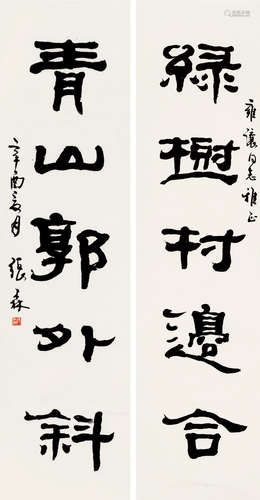 綠樹村邊合
雍讓同志雅正
青山郭外斜
辛酉夏月 張森